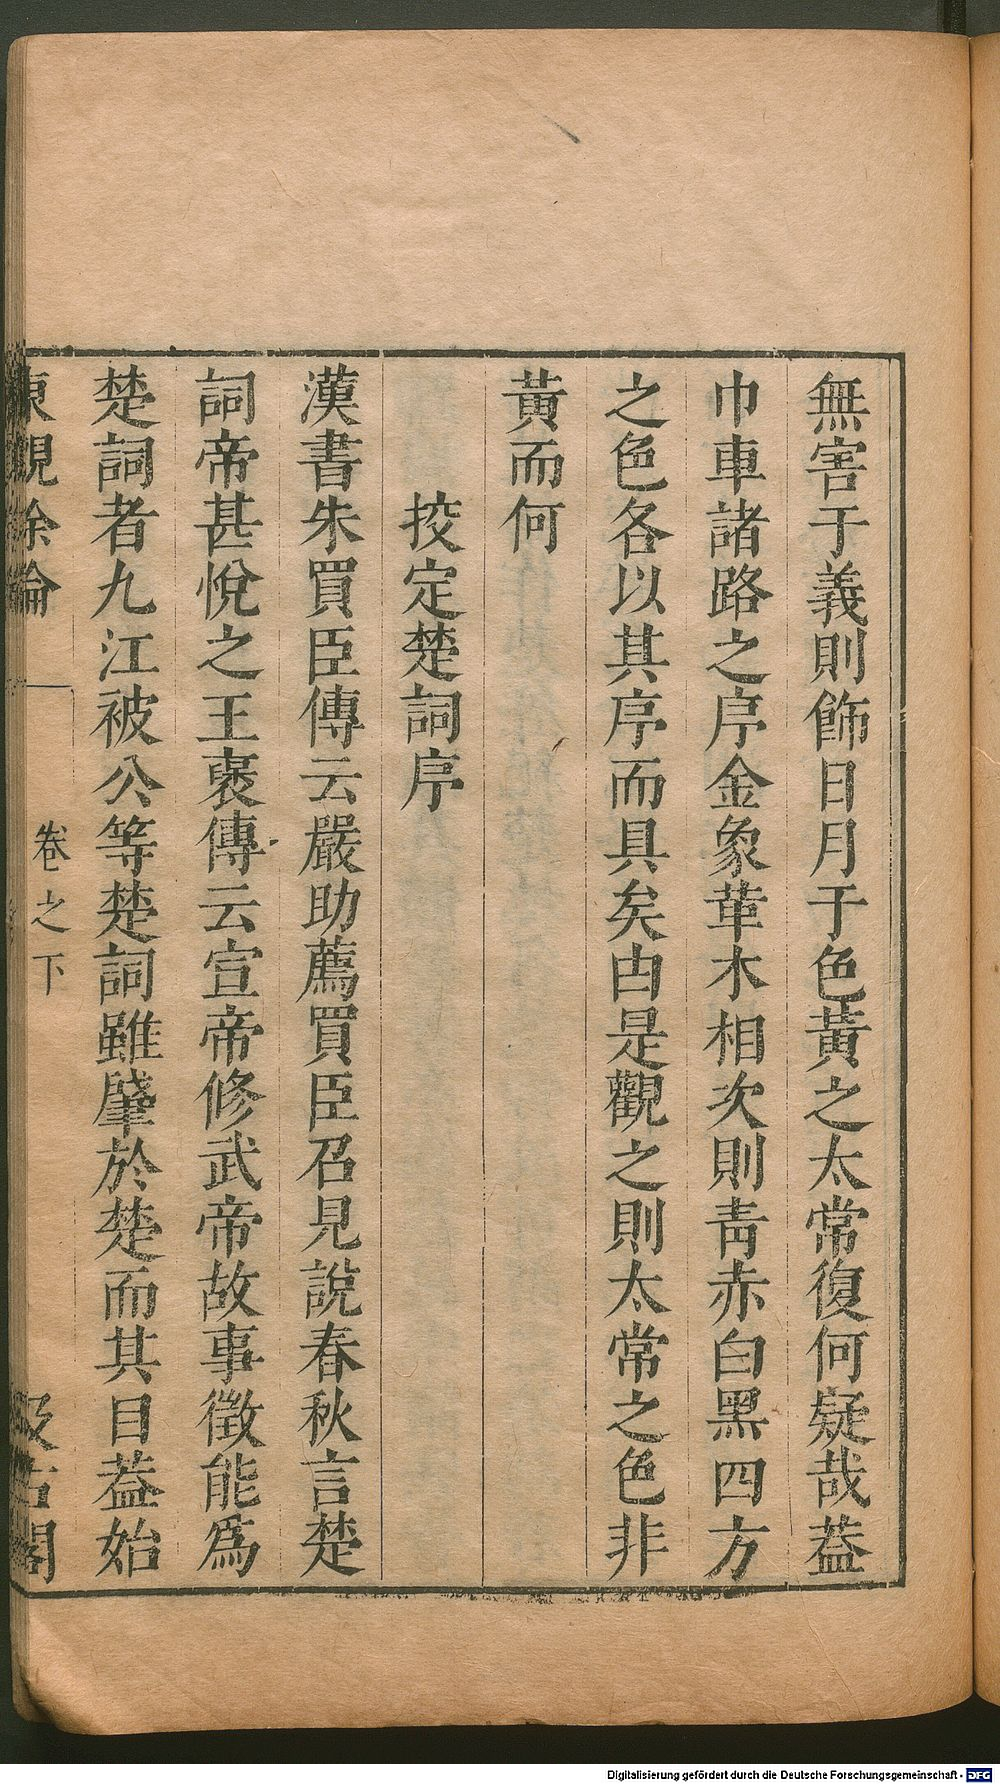 無害于義則飾日月于色黃之太常復何疑哉葢
巾車諸路之序金象革木相次則靑赤白黑四方
之色各以其序而具矣由是觀之則太常之色非
黃而何
挍定楚詞序
漢書朱買臣傳云嚴助薦買臣召見說春秋言楚
詞帝甚悅之王褒傳云宣帝修武帝故事徵能爲
楚詞者九江被公等楚詞雖肇於楚而其目葢始
東觀餘論 卷之下 汲古閣
Digitalisierung gefördert durch die Deutsche Forschungsgemeinschaft - DFG